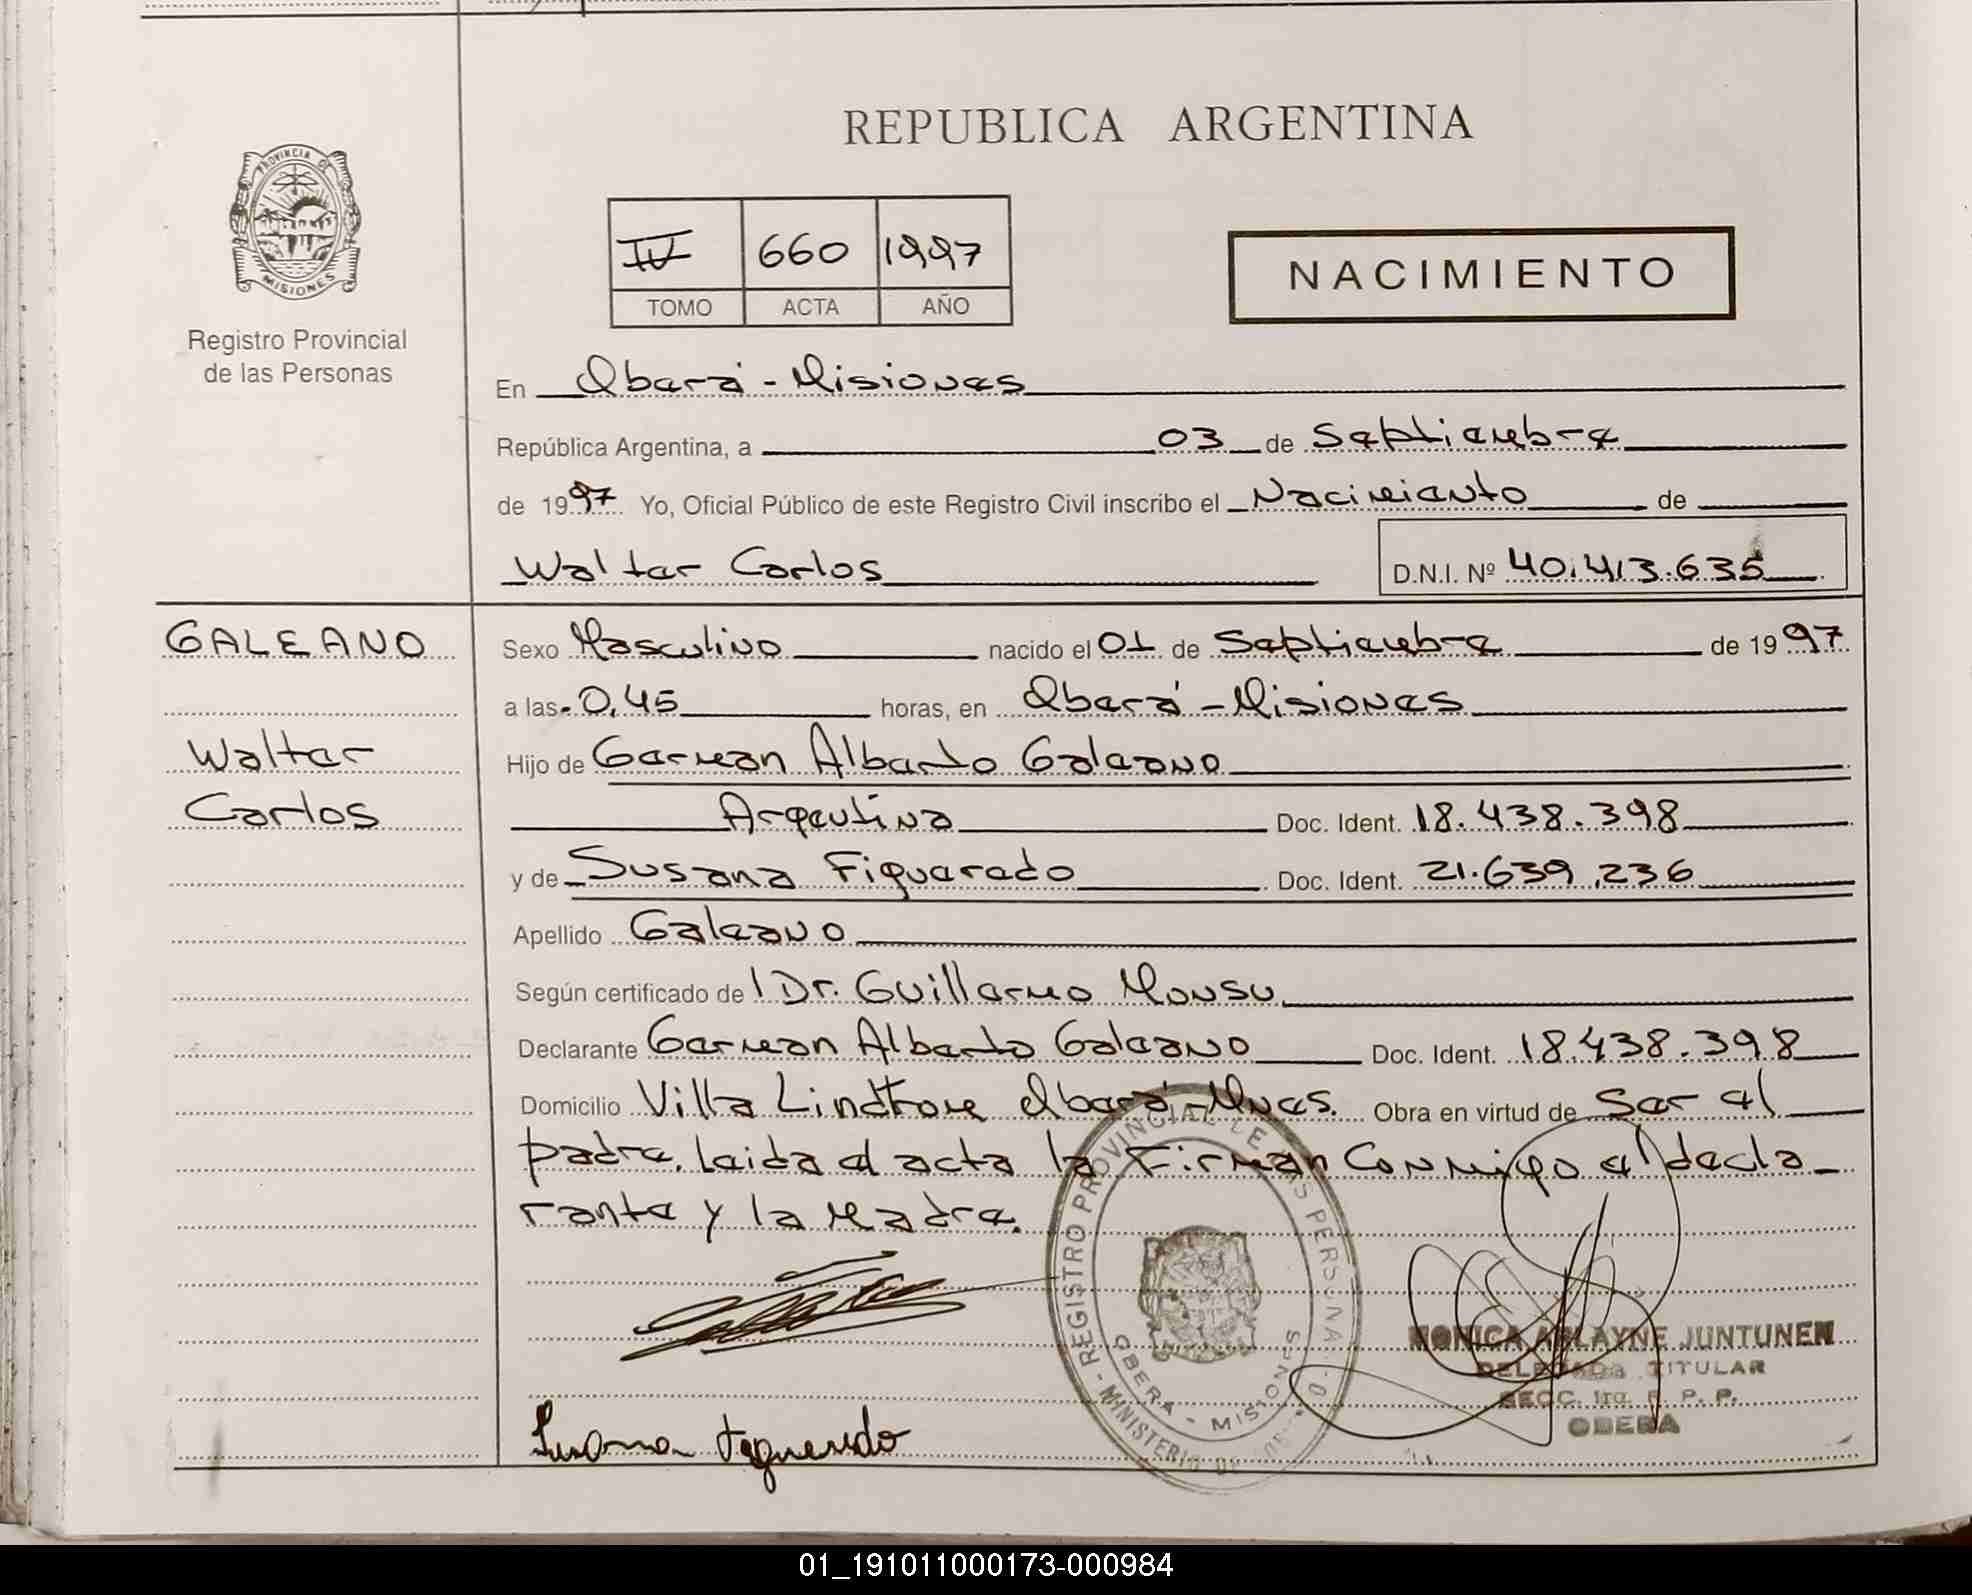 REPUBLICA ARGENTINA
PROVINCIA DE
MISIONES
Registro Provincial
de las Personas
IV 660 1997
TOMO ACTA AÑO
NACIMIENTO
En Oberá - Misiones
República Argentina, a 03 de Septiembre
de 1997 Yo, Oficial Público de este Registro Civil inscribo el Nacimiento de
Walter Carlos D.N.I. Nº 40.413.635
GALEANO
Walter
Carlos
Sexo Masculino nacido el 01 de Septiembre de 1997
a las 0,45 horas, en Oberá - Misiones
Hijo de German Alberto Galeano
Argentina Doc. Ident. 18.438.398
y de Susana Figueredo Doc. Ident. 21.639.236
Apellido Galeano
Según certificado de l Dr. Guillermo Monsu
Declarante German Alberto Galeano Doc. Ident. 18.438.398
Domicilio Villa Oberá - Mnes. Obra en virtud de Ser el
padre. leida el acta la Firman Conmigo el decla_
rante y la Madre.
REGISTRO PROVINCIAL DE LAS PERSONAS
OBERA - MISIONES
MINISTERIO DE
MONICA JUNTUNEN
DELEGADA TITULAR
SECC. 1ra. R. P. P.
OBERA
Susana Figueredo
01_191011000173-000984